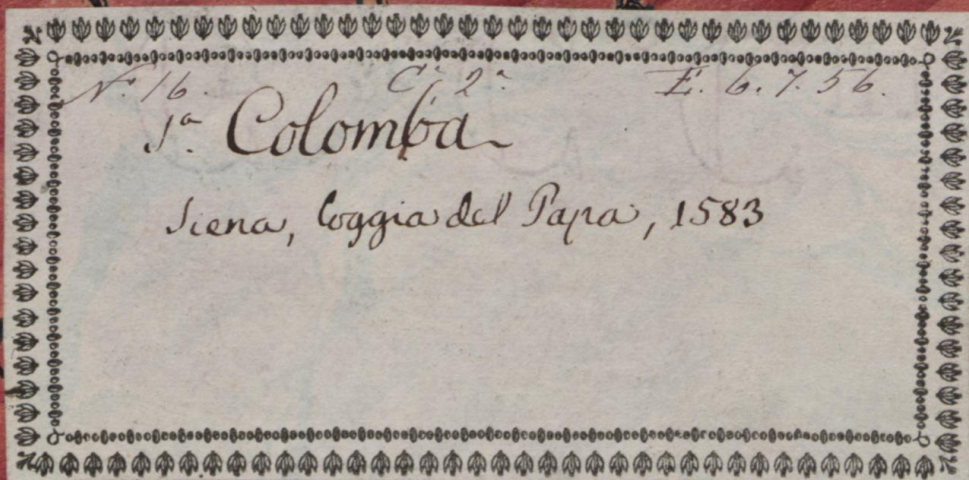 N. 16. C.ª 2ª E. 6. 7. 56.
S.ª Colomba
Siena, Loggia del Papa, 1583